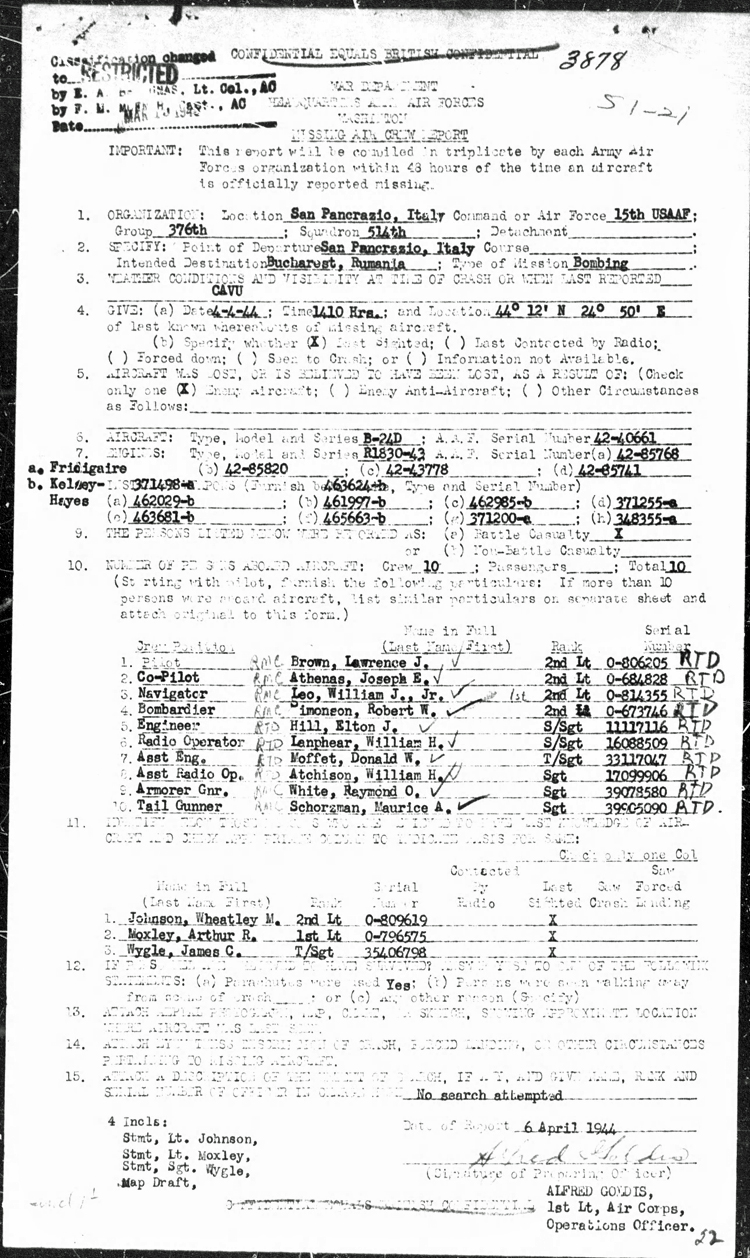 CONFIDENTIAL EQUALS BRITISH CONFIDENTIAL
3878
Classification changed
to RESTRICTED
by E. A. Lt. Col., AC
by F. M. Capt., AC
Date
WAR DEPARTMENT
HEADQUARTERS ARMY AIR FORCES
WASHINGTON
51-21
MISSING AIR CREW REPORT
IMPORTANT: This report will be compiled in triplicate by each Army Air
Forces organization within 48 hours of the time an aircraft
is officially reported missing.
1. ORGANIZATION: Location San Pancrazio, Italy Command or Air Force 15th USAAF;
Group 376th ; Squadron 514th ; Detachment
2. SPECIFY: Point of Departure San Pancrazio, Italy Course ;
Intended Destination Bucharest, Rumania ; Type of Mission Bombing
3. WEATHER CONDITIONS AND VISIBILITY AT TIME OF CRASH OR WHEN LAST REPORTED
CAVU
4. GIVE: (a) Date 4-4-44 ; Time 1410 Hrs.; and Location 44° 12' N 24° 50' E
of last known whereabouts of missing aircraft.
(b) Specify whether (X) Last Sighted; ( ) Last Contacted by Radio;
( ) Forced down; ( ) Seen to Crash; or ( ) Information not Available.
5. AIRCRAFT WAS LOST, OR IS BELIEVED TO HAVE BEEN LOST, AS A RESULT OF: (Check
only one (X) Enemy Aircraft; ( ) Enemy Anti-Aircraft; ( ) Other Circumstances
as Follows:
6. AIRCRAFT: Type, Model and Series B-24D ; A.A.F. Serial Number 42-40661
7. ENGINES: Type, Model and Series R1830-43 A.A.F. Serial Number(a) 42-85768
a. Fridigaire (b) 42-85820 ; (c) 42-43778 (d) 42-85741
b. Kelsey- 371498-a (Furnish 463624-b, Type and Serial Number)
Hayes (a) 462029-b ; (b) 461997-b ; (c) 462985-b ; (d) 371255-a
(e) 463681-b ; (f) 465663-b ; (g) 371200-a ; (h) 348355-a
9. THE PERSONS LISTED BELOW WERE REPORTED AS: (a) Battle Casualty X
or (b) Non-Battle Casualty
10. NUMBER OF PERSONS ABOARD AIRCRAFT: Crew 10 ; Passengers ; Total 10
(Starting with pilot, furnish the following particulars: If more than 10
persons were aboard aircraft, list similar particulars on separate sheet and
attach original to this form.)
Name in Full Serial
Crew Position (Last Name First) Rank Number
1. Pilot RMC Brown, Lawrence J. ✓ 2nd Lt 0-806205 RTD
2. Co-Pilot RMC Athenas, Joseph E. ✓ 2nd Lt 0-684828 RTD
3. Navigator RMC Leo, William J., Jr. ✓ 1st 2nd Lt 0-814355 RTD
4. Bombardier RMC Simonson, Robert W. ✓ 2nd Lt 0-673746 RTD
5. Engineer RTD Hill, Elton J. ✓ S/Sgt 11117116 RTD
6. Radio Operator RTD Lanphear, William H. ✓ S/Sgt 16088509 RTD
7. Asst Eng. RTD Moffet, Donald W. ✓ T/Sgt 33117047 RTD
8. Asst Radio Op. RTD Atchison, William H. ✓ Sgt 17099906 RTD
9. Armorer Gnr. RMC White, Raymond O. ✓ Sgt 39078580 RTD
10. Tail Gunner RMC Schorzman, Maurice A. ✓ Sgt 39905090 RTD.
11. IDENTIFY BELOW THOSE PERSONS WHO ARE BELIEVED TO HAVE LAST KNOWLEDGE OF AIR-
CRAFT AND CHECK APPROPRIATE COLUMN TO INDICATE BASIS FOR SAME:
Check only one Col
Contacted Saw
Name in Full Serial By Last Saw Forced
(Last Name First) Rank Number Radio Sighted Crash Landing
1. Johnson, Wheatley M. 2nd Lt 0-809619 X
2. Moxley, Arthur R. 1st Lt 0-796575 X
3. Wygle, James C. T/Sgt 35406798 X
12. IF PERSONNEL ARE BELIEVED TO HAVE SURVIVED, ANSWER YES TO ONE OF THE FOLLOWING
STATEMENTS: (a) Parachutes were used Yes; (b) Persons were seen walking away
from scene of crash ; or (c) Any other reason (Specify)
13. ATTACH AERIAL PHOTOGRAPH, MAP, CHART, OR SKETCH, SHOWING APPROXIMATE LOCATION
WHERE AIRCRAFT WAS LAST SEEN.
14. ATTACH EYEWITNESS DESCRIPTION OF CRASH, FORCED LANDING, OR OTHER CIRCUMSTANCES
PERTAINING TO MISSING AIRCRAFT.
15. ATTACH A DESCRIPTION OF THE EXTENT OF SEARCH, IF ANY, AND GIVE NAME, RANK AND
SERIAL NUMBER OF OFFICER IN CHARGE HERE No search attempted
4 Incls: Date of Report 6 April 1944
Stmt, Lt. Johnson,
Stmt, Lt. Moxley,
Stmt, Sgt. Wygle,
Map Draft,
Alfred Goldis
(Signature of Preparing Officer)
ALFRED GOLDIS,
1st Lt, Air Corps,
Operations Officer.
CONFIDENTIAL EQUALS BRITISH CONFIDENTIAL
22